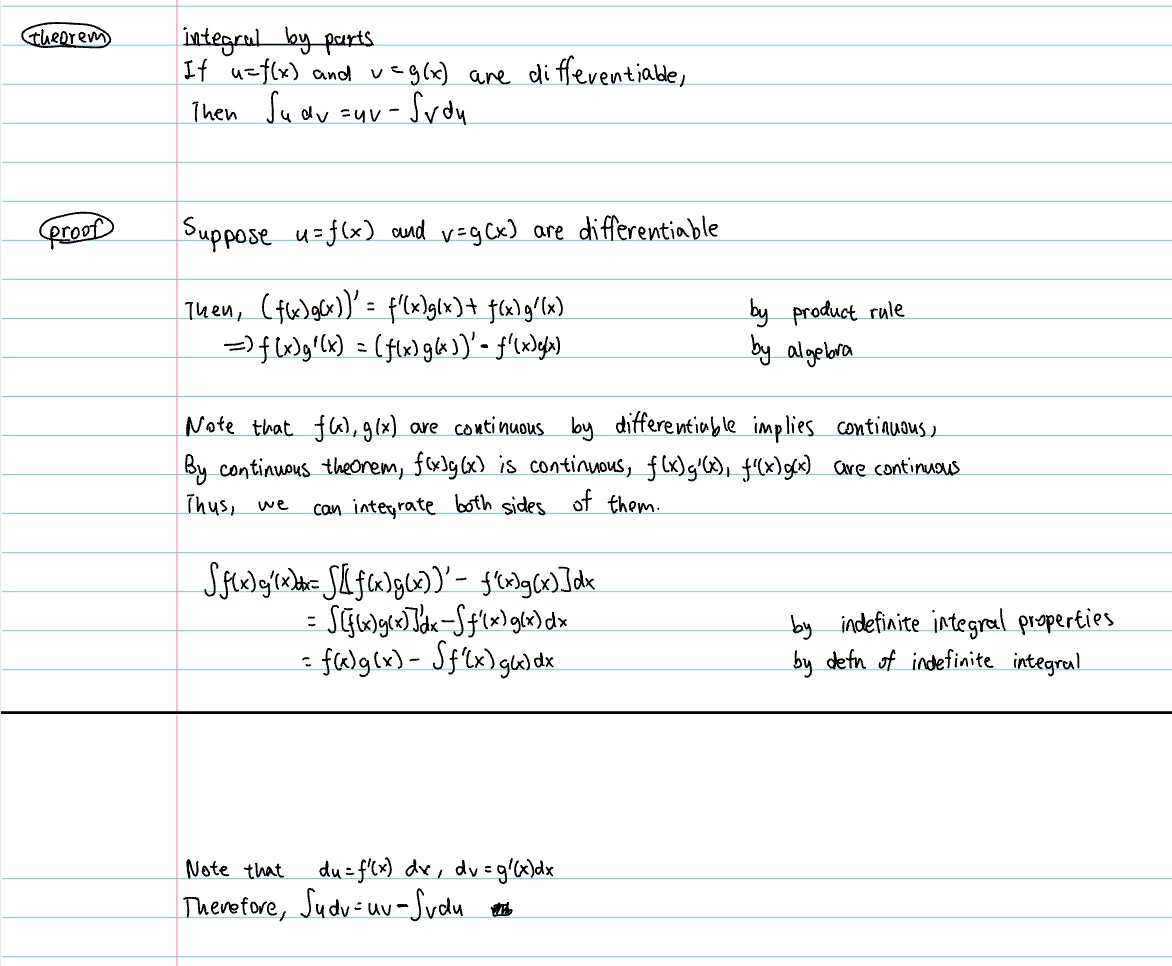 theorem
integral by parts
If u=f(x) and v=g(x) are differentiable,
Then ∫u dv = uv - ∫v du
proof
Suppose u=f(x) and v=g(x) are differentiable
Then, (f(x)g(x))' = f'(x)g(x) + f(x)g'(x) by product rule
⇒ f(x)g'(x) = (f(x)g(x))' - f'(x)g(x) by algebra
Note that f(x), g(x) are continuous by differentiable implies continuous,
By continuous theorem, f(x)g(x) is continuous, f(x)g'(x), f'(x)g(x) are continuous
Thus, we can integrate both sides of them.
∫f(x)g'(x)dx = ∫[(f(x)g(x))' - f'(x)g(x)]dx
= ∫[f(x)g(x)]'dx - ∫f'(x)g(x)dx by indefinite integral properties
= f(x)g(x) - ∫f'(x)g(x)dx by defn of indefinite integral
Note that du = f'(x) dx, dv = g'(x)dx
Therefore, ∫u dv = uv - ∫v du